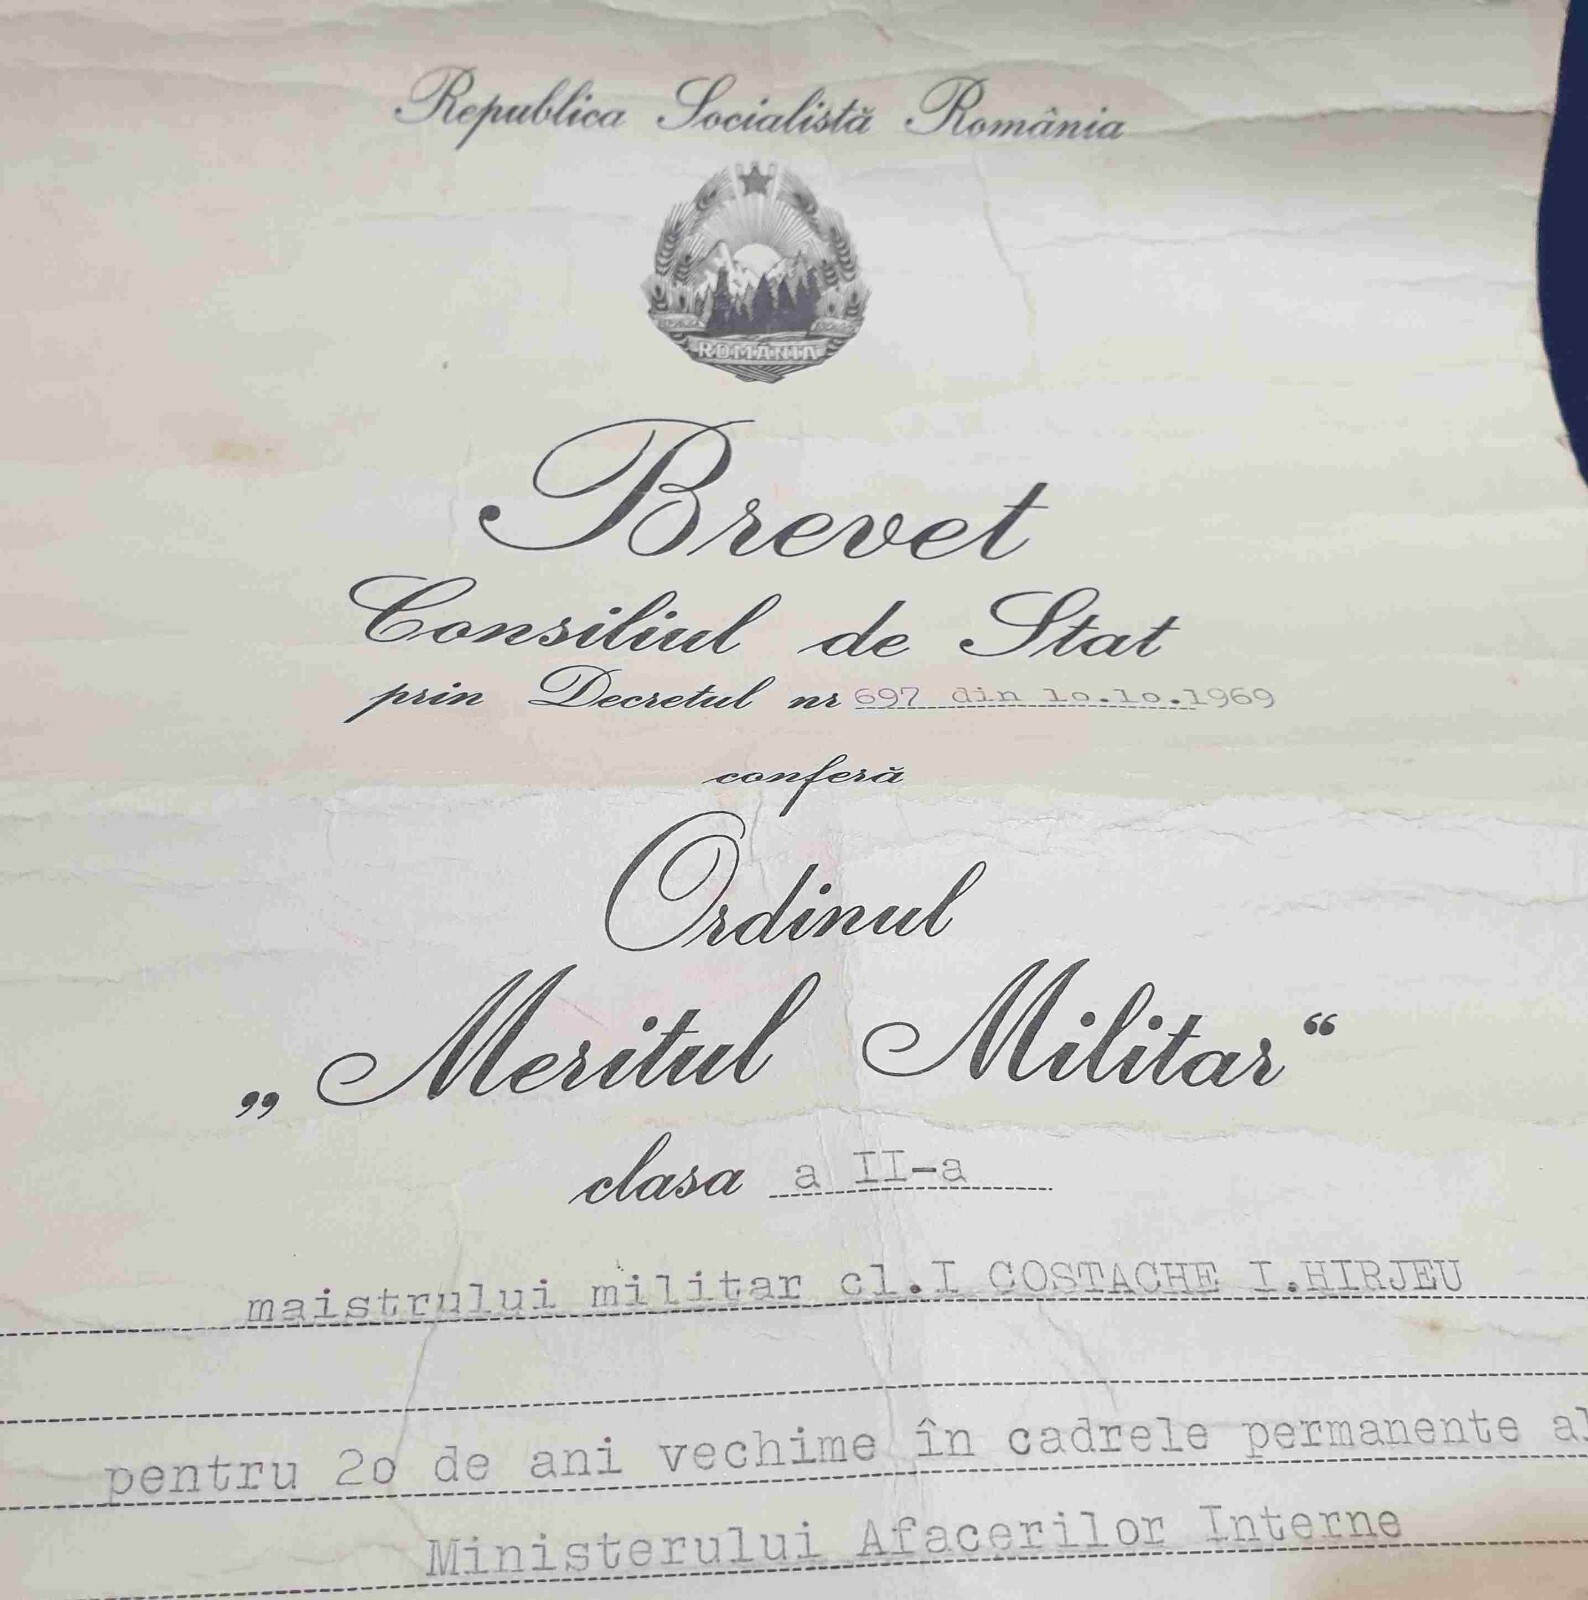 Republica Socialistă România
ROMANIA
Brevet
Consiliul de Stat
prin Decretul nr 697 din 1o.1o.1969
conferă
Ordinul
„Meritul Militar“
clasa a II-a
maistrului militar cl.I COSTACHE I.HIRJEU
pentru 2o de ani vechime în cadrele permanente al
Ministerului Afacerilor Interne